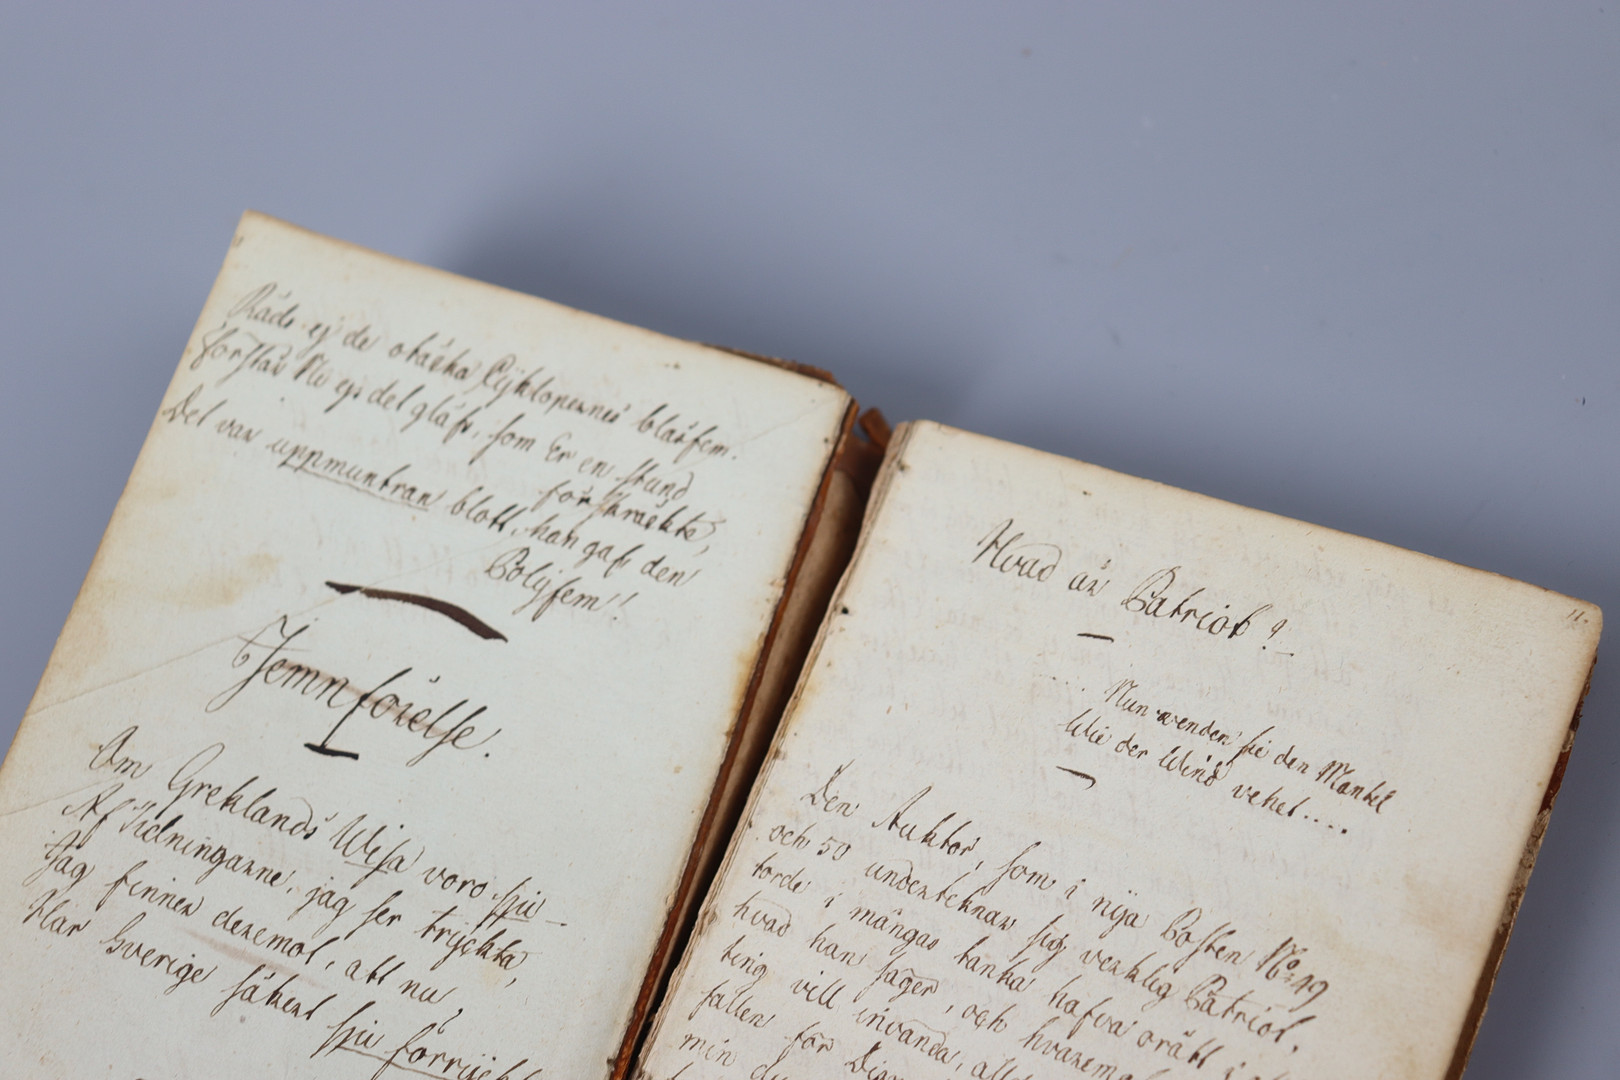 Räds ej de otäcka Cyklopernes blasfem.
Förstås Ni ej det gläfs, som Er en stund
förskräckte,
Det var uppmuntran blott, han gaf den
Polyfem!
Jemnförelse.
Om Greklands Wisa voro sju
Af Tidningarne, jag ser tryckta,
Jag finner deremot, att nu,
Har Sverige säkert sju förryckt
11.
Hvad är Patriot?
..... Nun wenden sie den Mantel
Wie der Wind vehet....
Den Auktor, som i nya Posten No: 49
och 50 undertecknar sig verklig Patriot,
torde i mångas tanka hafva orätt i
hvad han säger, och hvaremot
ting vill invända, all
fallen för
min